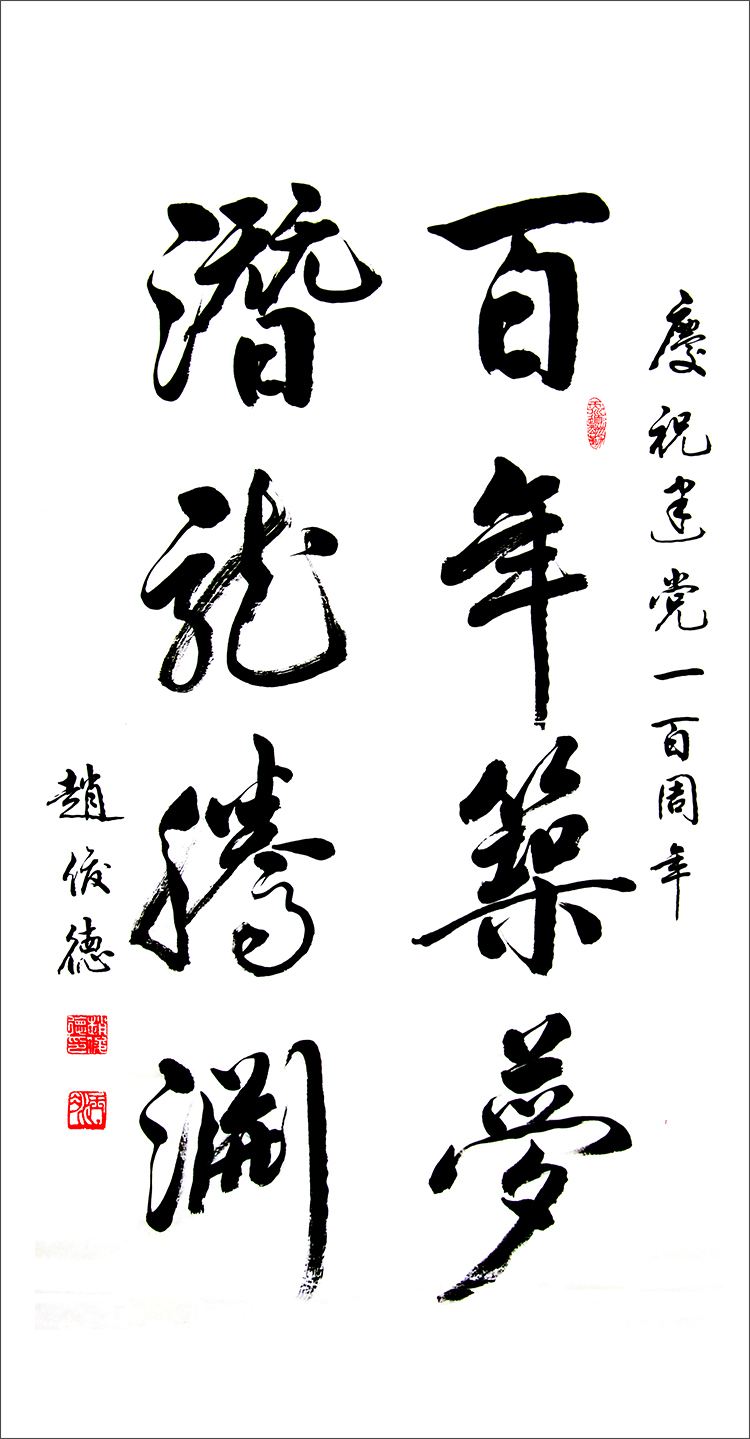 慶祝建党一百周年
百年築夢
潛龍騰淵
趙俊德